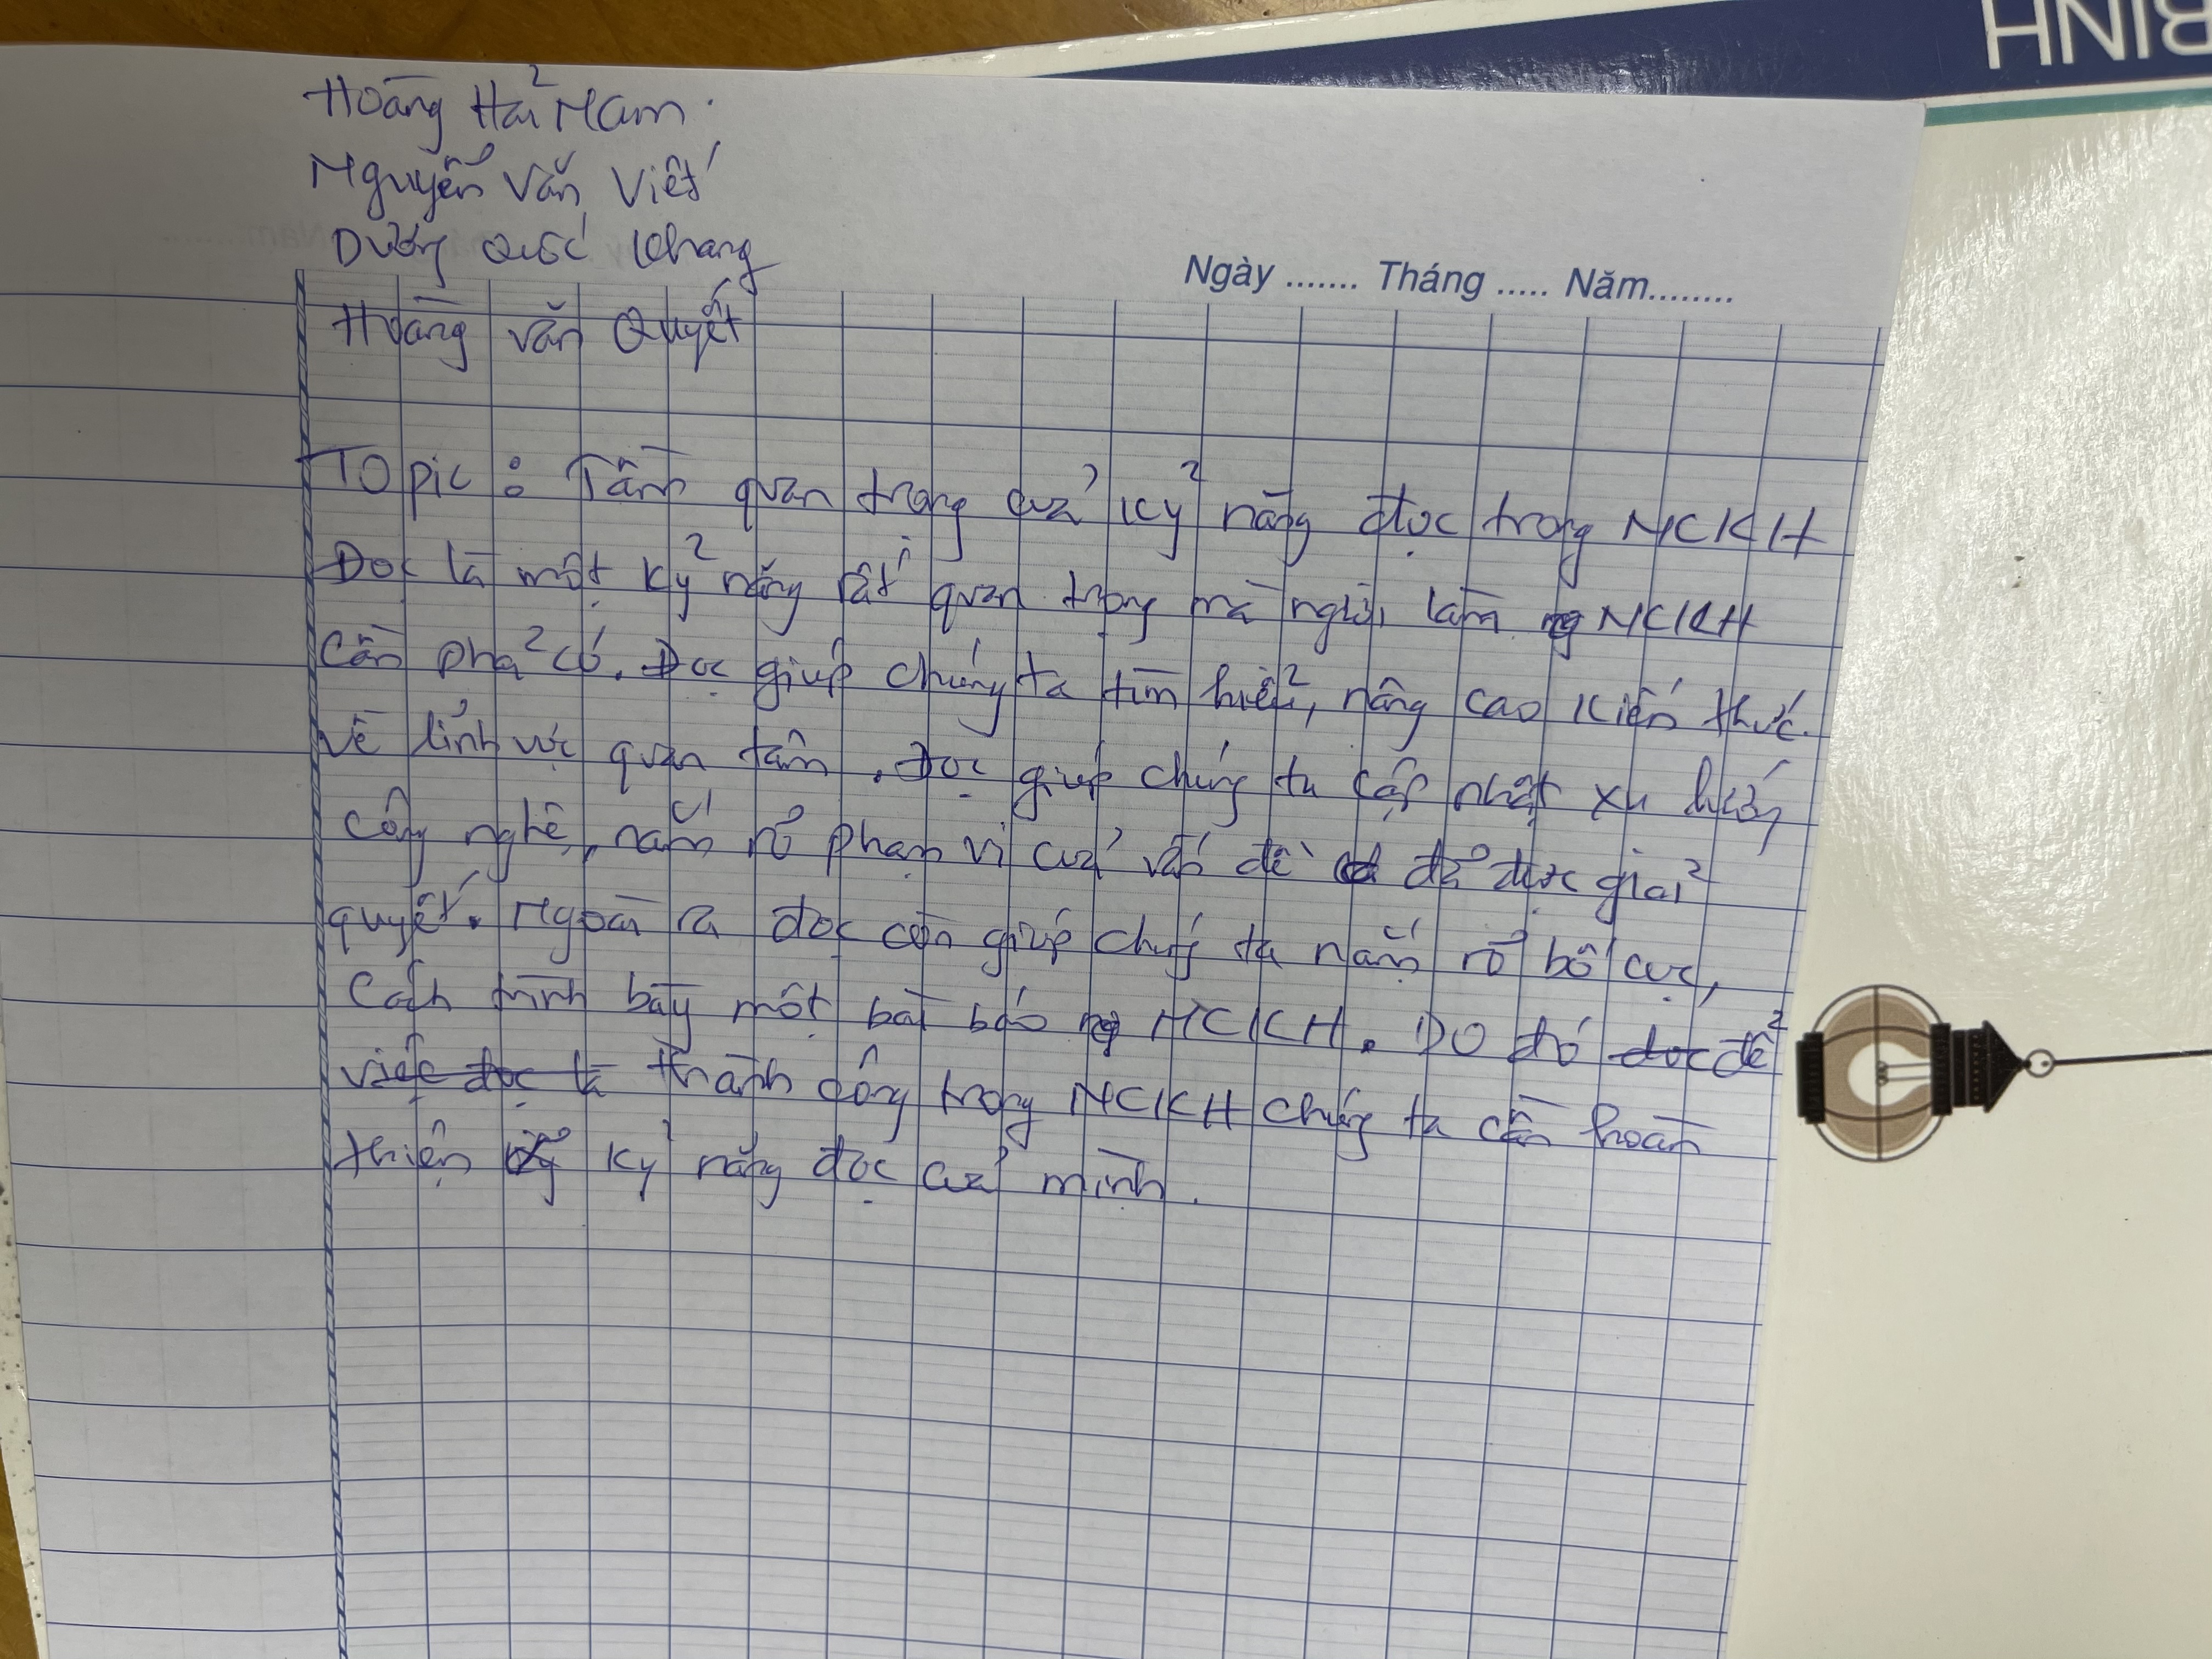 BINH
Hoàng Hải Nam.
Nguyễn Văn Viết
Dương Quốc Khang
Ngày ....... Tháng ..... Năm........
Hoàng Văn Quyết
Topic : Tầm quan trọng của kỷ năng đọc trong NCKH
Đọc là một kỷ năng rất quan trọng mà người làm NCKH
cần phải có. Đọc giúp chúng ta tìm hiểu, nâng cao kiến thức
về lỉnh vực quan tâm. Đọc giúp chúng ta cập nhật xu hướng
công nghệ, nắm rỏ phạm vi của vấn đề đả được giải
quyết. Ngoài ra đọc còn giúp chúng ta nắm rỏ bố cục,
cách trình bày một bài báo NCKH. Do đó đọc để
việc đọc là thành công trong NCKH chúng ta cần hoàn
thiện kỷ năng đọc của mình.